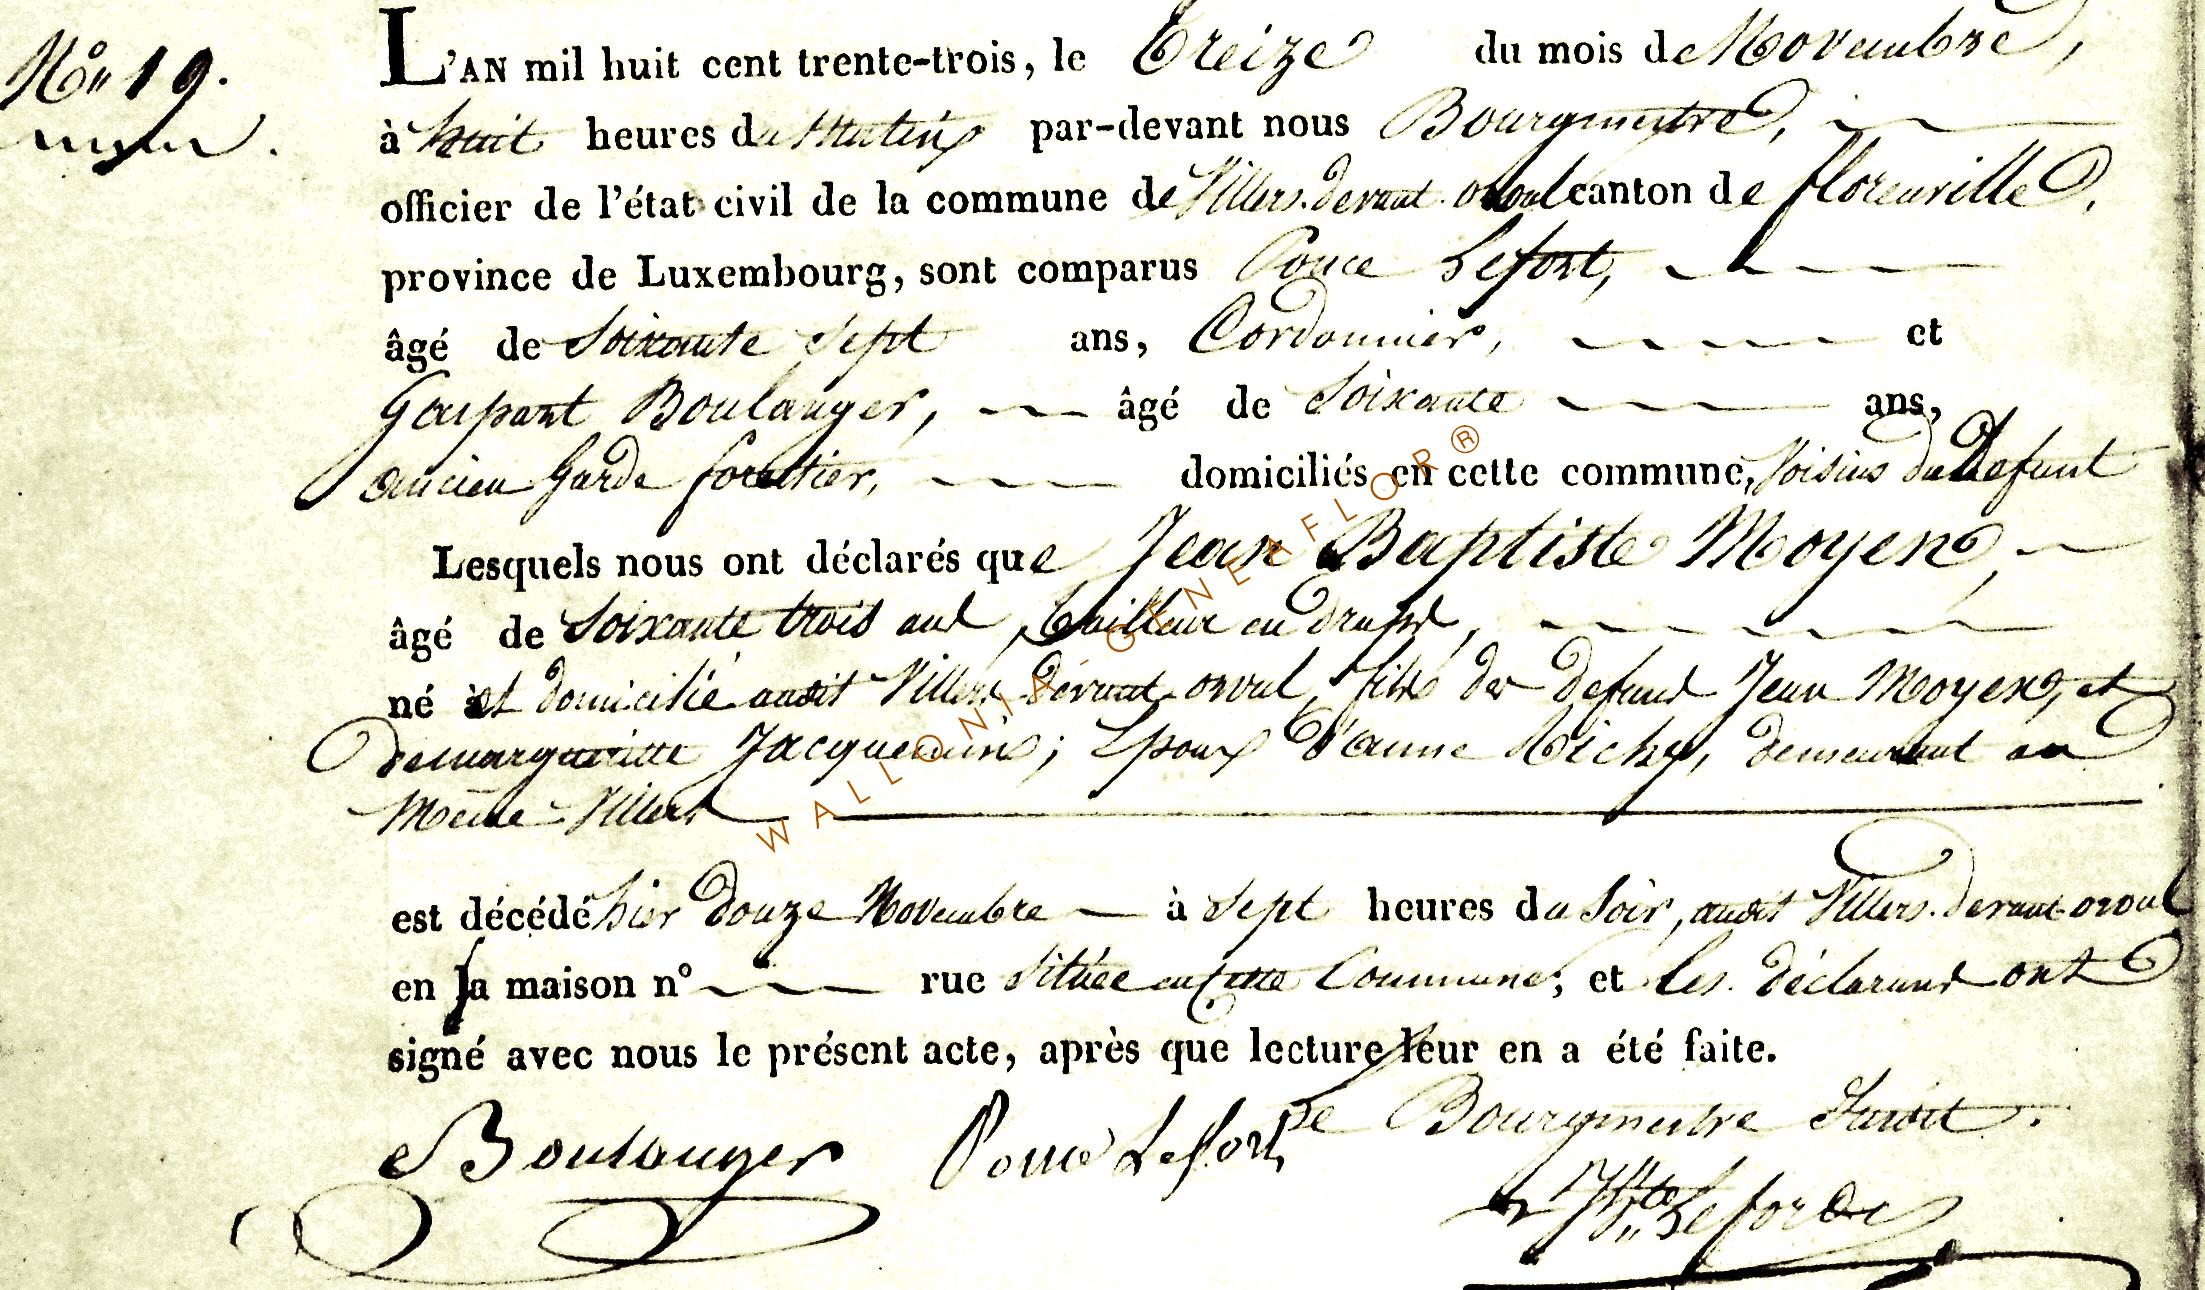 N° 19.
L'AN mil huit cent trente-trois, le Treize du mois de Novembre,
à huit heures du Matin par-devant nous Bourgmestre,
officier de l'état civil de la commune de Villers. devant orval canton de florenville,
province de Luxembourg, sont comparus Ponce Lefort,
âgé de Soixante Sept ans, Cordonnier, et
Gaspart Boulanger, âgé de Soixante ans,
ancien Garde forettier, domiciliés en cette commune, Voisins du Defunt
Lesquels nous ont déclarés que Jean Baptiste Moyen,
âgé de Soixante trois ans, Tailleur en draps,
né et domicilié audit Villers devant orval, fils de defunt Jean Moyen, et
de margueritte Jacquemin; Epoux d'anne Richy, demeurant au
Même Villers
est décédé hier douze Novembre à Sept heures du Soir, audit Villers. devant orval
en sa maison n° rue Située en Cette Commune; et les déclarans ont
signé avec nous le présent acte, après que lecture leur en a été faite.
Boulanger Ponce Lefort Le Bourgmestre Susdit.
Lefort
WALLONIA-GENEAFLOR®